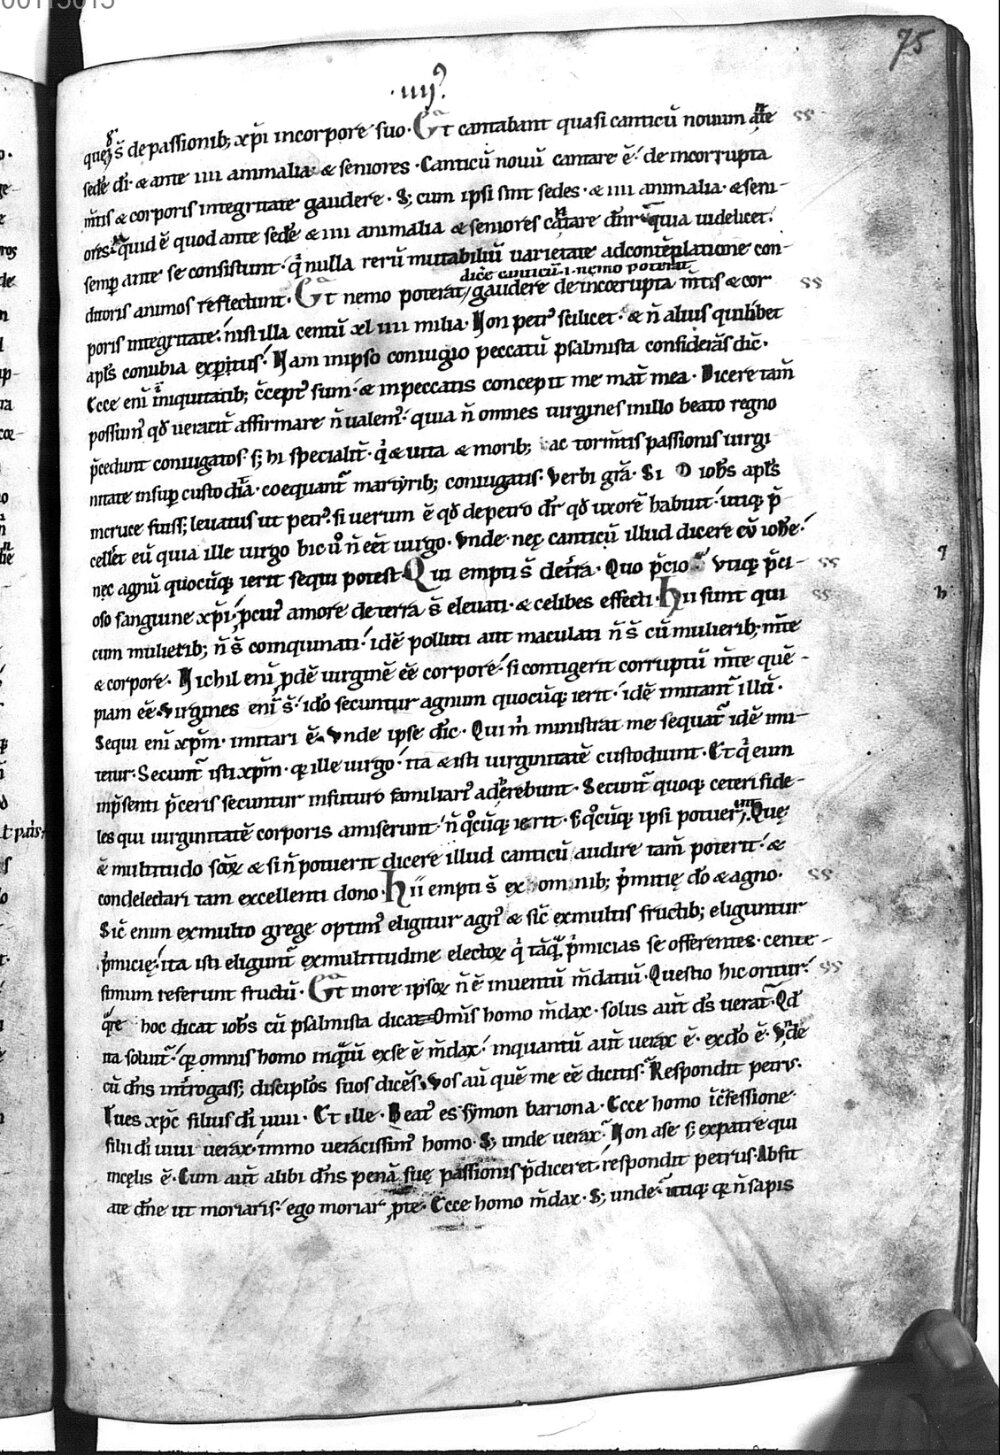 75
·iiii·
quę s̄ de passionib; xp̄i incorpore suo· Et cantabant quasi canticū nouum ante
sedē dī· & ante iiii animalia & seniores· Canticū nouū cantare ē· de incorrupta
m̄tis & corporis integritate gaudere· S; cum ipsi sint sedes· & iiii animalia· & seni-
ores· quid ē quod ante sedē & iiii animalia & seniores cantare dn̄r· quia uidelicet·
semp ante se consistunt· q̇ nulla rerū mutabiliū uarietate ad contēplatione con-
dicē canticū·i·nemo poterat
ditoris animos reflectunt· Et nemo poterat gaudere de incorrupta m̄tis & cor
poris integritate· nisi illa centū xl iiii milia· Non petr᾽ scilicet· & n̄ alius quilibet
apl̄s conubia expertus· Nam in ipso coniugio peccatū psalmista considerās dīc·
Ecce enī in iniquitatib; c̄cept᾽ sum· & in peccatis concepit me mat̄ mea· Dicere tam̄
possum᾽ qđ ueracit̄ affirmare n̄ ualem᾽· quia n̄ omnes uirgines in illo beato regno
p̄cedunt coniugatos· s; hi specialit̄· q̇ & uita & morib; ac torm̄tis passionis uirgi
nitate insup custodita· coequant᷑ martyrib; coniugatis· Verbi grā· Si iohs apl̄s
in cruce fuiss; leuatus ut petr᾽· si uerum ē qđ de petro dr̄ qđ uxorē habuit· utiq; p̄-
cellet eū quia ille uirgo hic ů n̄ eēt uirgo· Vnde· nęc canticū illud dicere cū iohē·
nęc agnū quocūq; ierit sequi potest· Qui empti s̄ de terra· Quo p̄cio Vtiq; p̄ci-
oso sanguine xp̄i· pcui᾽ amore de terra s̄ eleuati· & celibes effecti· Hii sunt qui
cum mulierib; n̄ s̄ coinquinati· idē polluti aut maculati n̄ s̄ cū mulierib; m̄te
& corpore· Nichil enī pdē uirginē eē corpore· si contigerit corruptū m̄te quē-
piam eē· Virgines enī s̄· ido secuntur agnum quocūq; ierit· idē imitant᷑ illū·
Sequi enī xp̄m· imitari ē· Vnde ipse dīc· Qui m̄ ministrat me sequat᷑ idē imi-
tetur· Secunt᷑ isti xp̄m· q; ille uirgo· ita & isti uirginitatē custodiunt· Et q̇ eum
inp̄senti p̄ceris secuntur in futuro familiari᾽ adherebunt· Secunt᷑ quoq; ceteri fide-
les qui uirginitatē corporis amiserunt· n̄ q̊cūq; ierit· s; q̊cūq; ipsi potuerunt· Quę
ē multitudo scōꝝ & si n̄ potuerit dicere illud canticū audire tam̄ poterit· &
condelectari tam excellenti dono· Hii empti s̄ ex hominib; p̄mitię dō & agno·
Sic̄ enim ex multo grege optim᾽ eligitur agn᾽ & sic̄ ex multis fructib; eliguntur
p̄micię· ita isti eligunt᷑ ex multitudine electoꝝ q̇ tāq̄ p̄micias se offerentes· cente-
simum referunt fructū· Et in ore ipsoꝝ n̄ ē inuentū m̄daciū· Questio hic oritur·
q̄re hoc dicat iohs cū psalmista dicat Omīs homo m̄dax· solus aut̄ ds̄ uerax· Qđ
ita soluit᷑· q; omnis homo inq̄tū ex se ē m̄dax· inquantū aut̄ uerax ē· ex dō ē· Vnde
cū dn̄s int̄rogass; discipl̄os suos dicēs· Vos aū quē me eē dicitis· Respondit petr᾽·
Tu es xp̄c filius dī uiui· Et ille· Beat᾽ es symon bariona· Ecce homo ī c̄fessione
filii dī uiui uerax· immo ueracissim᾽ homo· S; unde uerax· Non a se s; ex patre qui
in cęlis ē· Cum aut̄ alibi dn̄s penā suę passionis p̄diceret· respondit petrus· Absit
a te dn̄e ut moriaris· ego moriar p te· Ecce homo m̄dax· S; unde· utiq; q; n̄ sapis